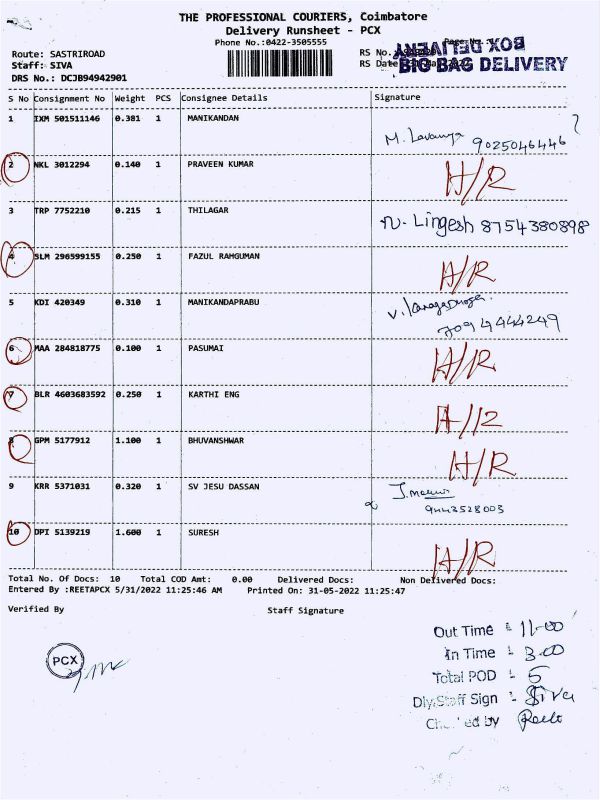 THE PROFESSIONAL COURIERS, Coimbatore
Delivery Runsheet - PCX
Phone No.:0422-3505555
Route: SASTRIROAD
RS No.
BOX DELIVERY
Staff: SIVA
RS Date
BIG BAG DELIVERY
DRS No.: DCJB94942901
S No Consignment No Weight PCS Consignee Details Signature
1 IXM 501511146 0.381 1 MANIKANDAN
M. Lavanya 9025046446
2 NKL 3012294 0.140 1 PRAVEEN KUMAR H/R
3 TRP 7752210 0.215 1 THILAGAR N. Lingesh 8754380898
4 SLM 296599155 0.250 1 FAZUL RAHGUMAN A/R
5 KDI 420349 0.310 1 MANIKANDAPRABU
7094444249
6 MAA 284818775 0.100 1 PASUMAI A/R
7 BLR 4603683592 0.250 1 KARTHI ENG A/R
8 GPM 5177912 1.100 1 BHUVANSHWAR H/R
9 KRR 5371031 0.320 1 SV JESU DASSAN
9443528003
10 DPI 5139219 1.600 1 SURESH A/R
Total No. Of Docs: 10 Total COD Amt: 0.00 Delivered Docs: Non Delivered Docs:
Entered By :REETAPCX 5/31/2022 11:25:46 AM Printed On: 31-05-2022 11:25:47
Verified By Staff Signature
PCX
Out Time : 11-00
In Time : 3.00
Total POD : 5
Dly.Staff Sign : Siva
Checked by